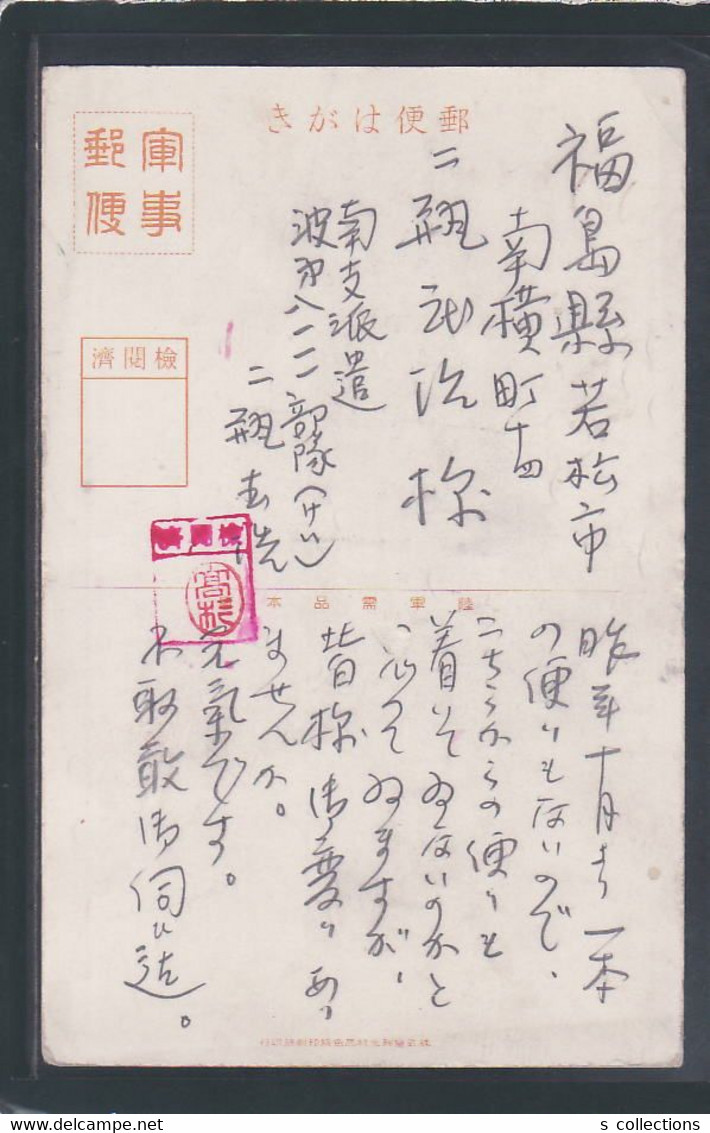 郵便はがき
軍事郵便
檢閱濟
福島縣若松市
南横町十四
二瓶 治様
南支派遣
波第八一一一部隊(けい)
二瓶
檢閱濟
高杉
陸軍需品本
昨年十月より一本
の便りもないので、
こちらからの便りも
着いてゐないのかと
心ってゐますが、
皆様御変りあり
ませんか。
元氣です。
不取敢御伺ひ迄。
s collections